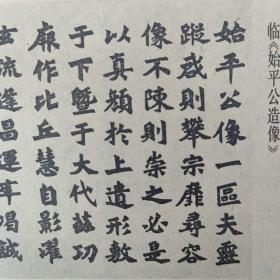 临《始平公造像》
始平公像一區夫靈
蹤惑則攀宗靡尋容
像不陳則崇之必是
以真顏於上遺形敷
于下暨于大代茲功
厥作比丘慧自影濯
玄流逢昌運率竭誠